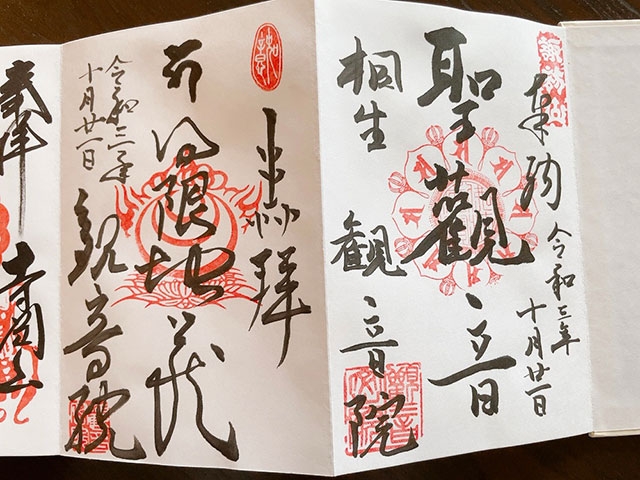 奉納 令和三年十月廿一日
聖觀音
桐生 観音院
奉拝
日限地蔵
令和三年
十月廿一日
観音院
奉拝 寺岡山